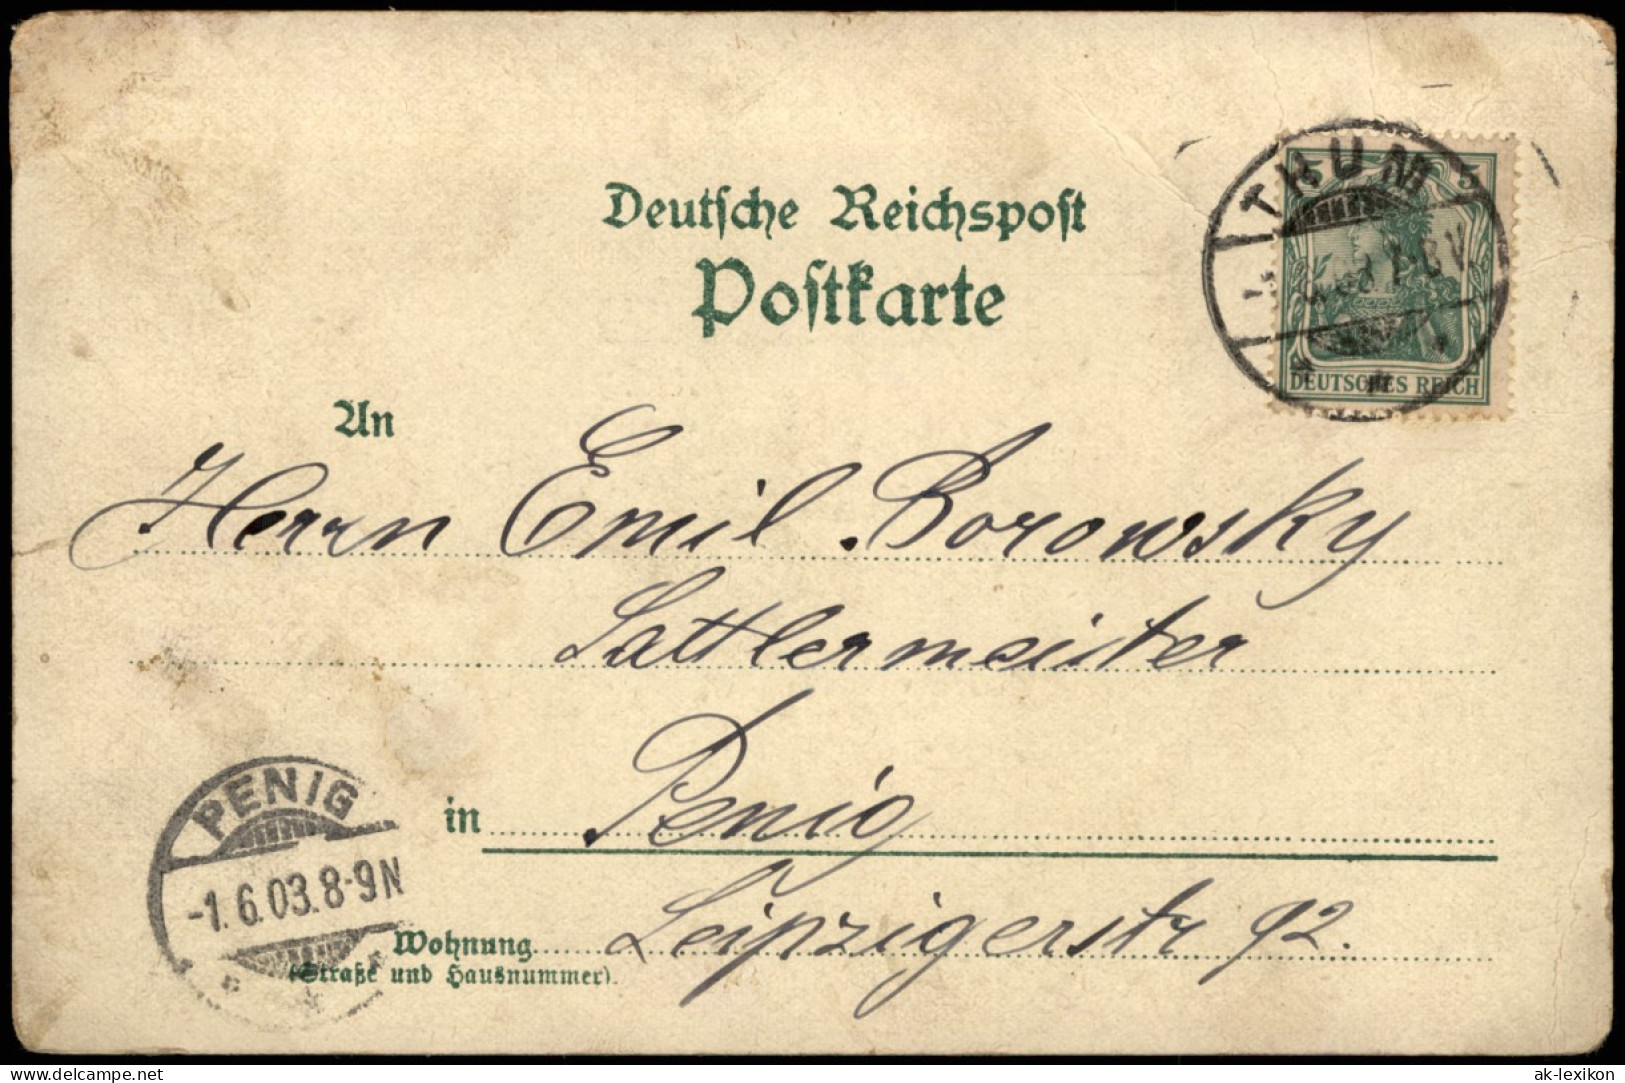 Deutsche Reichspost
Postkarte
THUM
5
DEUTSCHES REICH
An
Herrn Emil Borowsky
Sattlermeister
in Penig
PENIG
-1.6.03.8-9N
Wohnung Leipzigerstr 92.
(Straße und Hausnummer).
www.delcampe.net
ak-lexikon